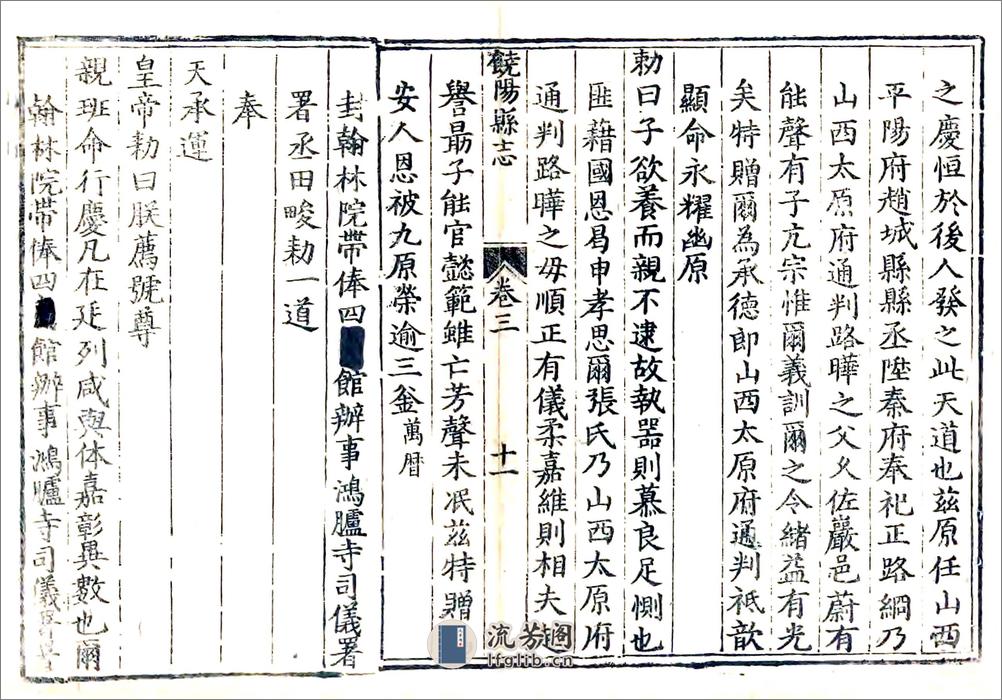 之慶恒於後人發之此天道也茲原任山西
平陽府趙城縣縣丞陞秦府奉祀正路綱乃
山西太原府通判路曄之父久佐巖邑蔚有
能聲有子亢宗惟爾義訓爾之令緒益有光
矣特贈爾為承德郎山西太原府通判祇歆
顯命永耀幽原
勅曰子欲養而親不逮故執器則慕良足惻也
匪藉國恩曷申孝思爾張氏乃山西太原府
通判路曄之母順正有儀柔嘉維則相夫
譽最子能官懿範雖亡芳聲未泯茲特贈
安人恩被九原榮逾三釡萬曆
饒陽縣志
卷三
十一
封翰林院帶俸四
館辦事鴻臚寺司儀署
署丞田畯勅一道
奉
天承運
皇帝勅曰朕薦號尊
親班命行慶凡在廷列咸與体嘉彰異數也爾
翰林院帶俸四
館辦事鴻臚寺司儀署
流芳阁
lfglib.cn